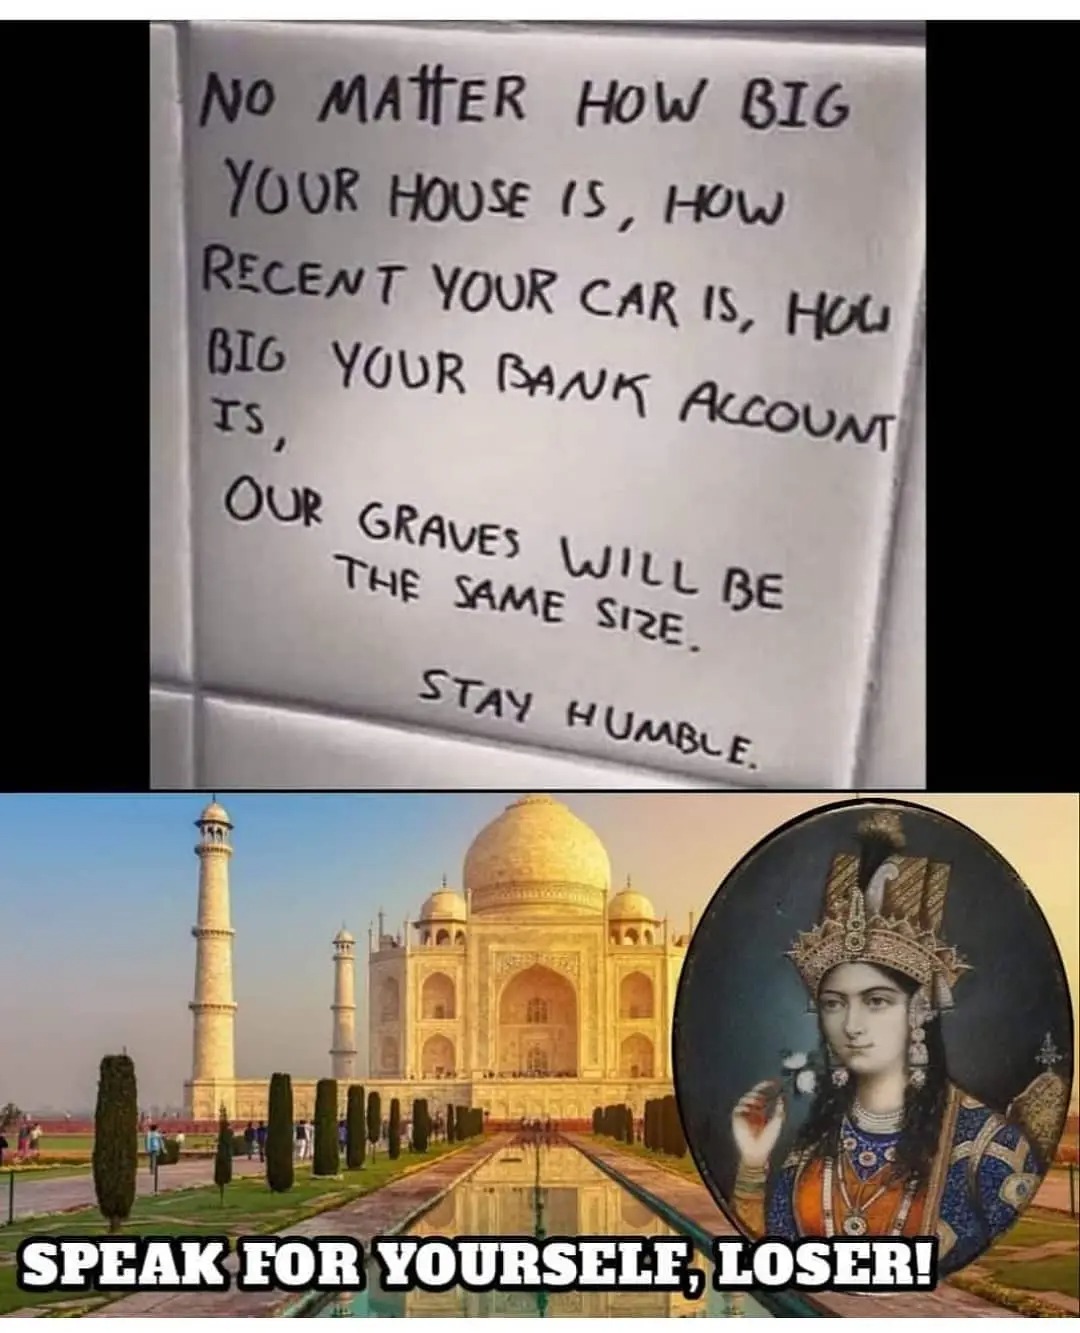 NO MATTER HOW BIG
YOUR HOUSE IS, HOW
RECENT YOUR CAR IS, HOW
BIG YOUR BANK ACCOUNT
IS,
OUR GRAVES WILL BE
THE SAME SIZE.
STAY HUMBLE.
SPEAK FOR YOURSELF, LOSER!